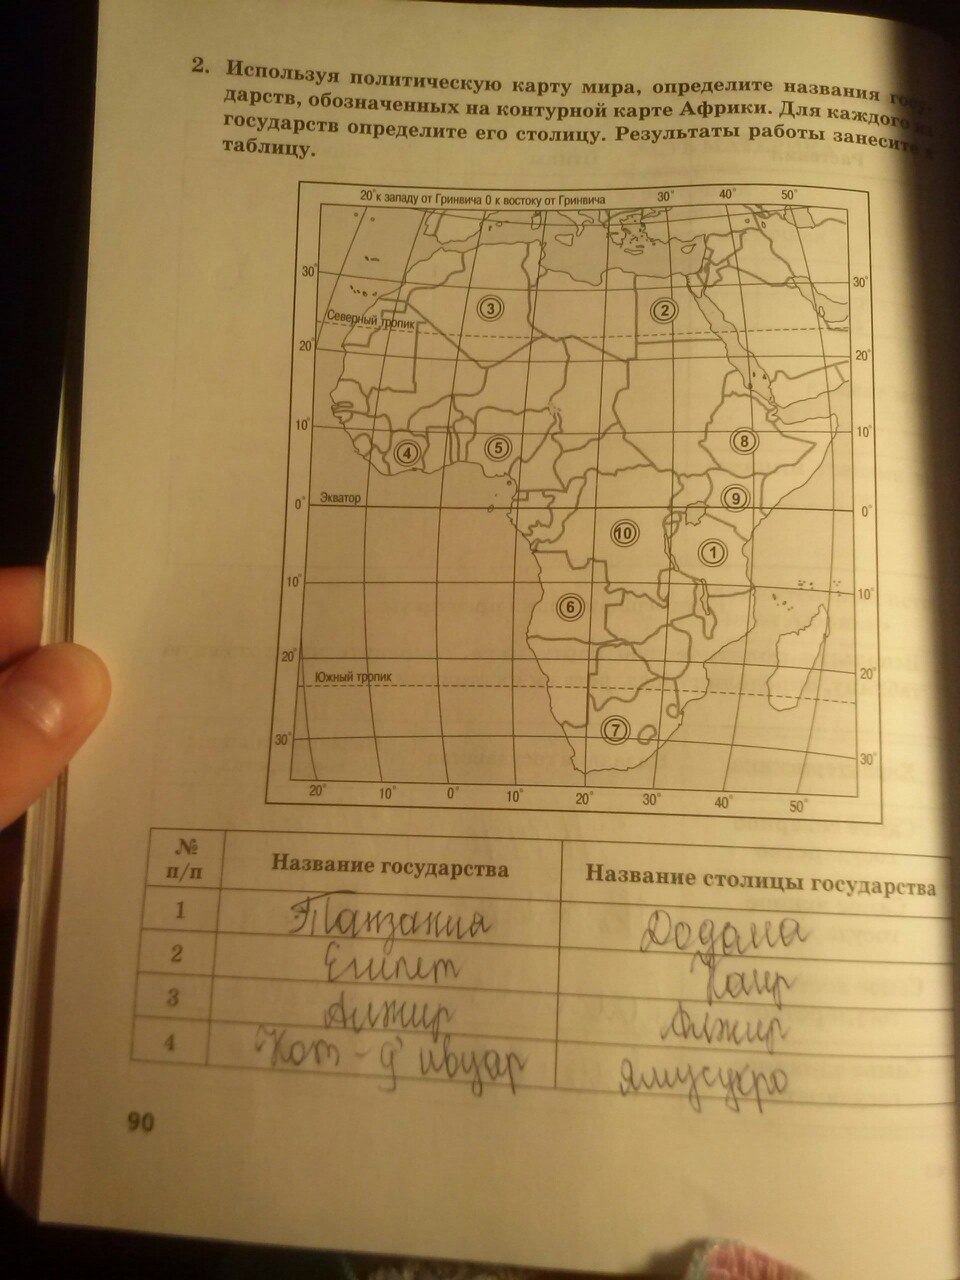 2. Используя политическую карту мира, определите названия госу-
дарств, обозначенных на контурной карте Африки. Для каждого из
государств определите его столицу. Результаты работы занесите в
таблицу.
20° к западу от Гринвича 0 к востоку от Гринвича 30° 40° 50°
30° 30°
3 2
Северный тропик
20° 20°
10° 10°
4 5 8
9
0° Экватор 0°
10 1
10° 10°
6
20° 20°
Южный тропик
7
30° 30°
20° 10° 0° 10° 20° 30° 40° 50°
№ п/п Название государства Название столицы государства
1 Танзания Додома
2 Египет Каир
3 Алжир Алжир
4 Кот-д'ивуар Ямусукро
90